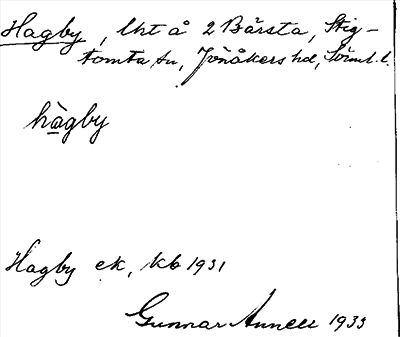 Hagby, lht å 2 Bärsta, Stig-
tomta sn, Jönåkers hd, Sörml. l.
hàgby
Hagby ek, kb 1931
Gunnar 1933